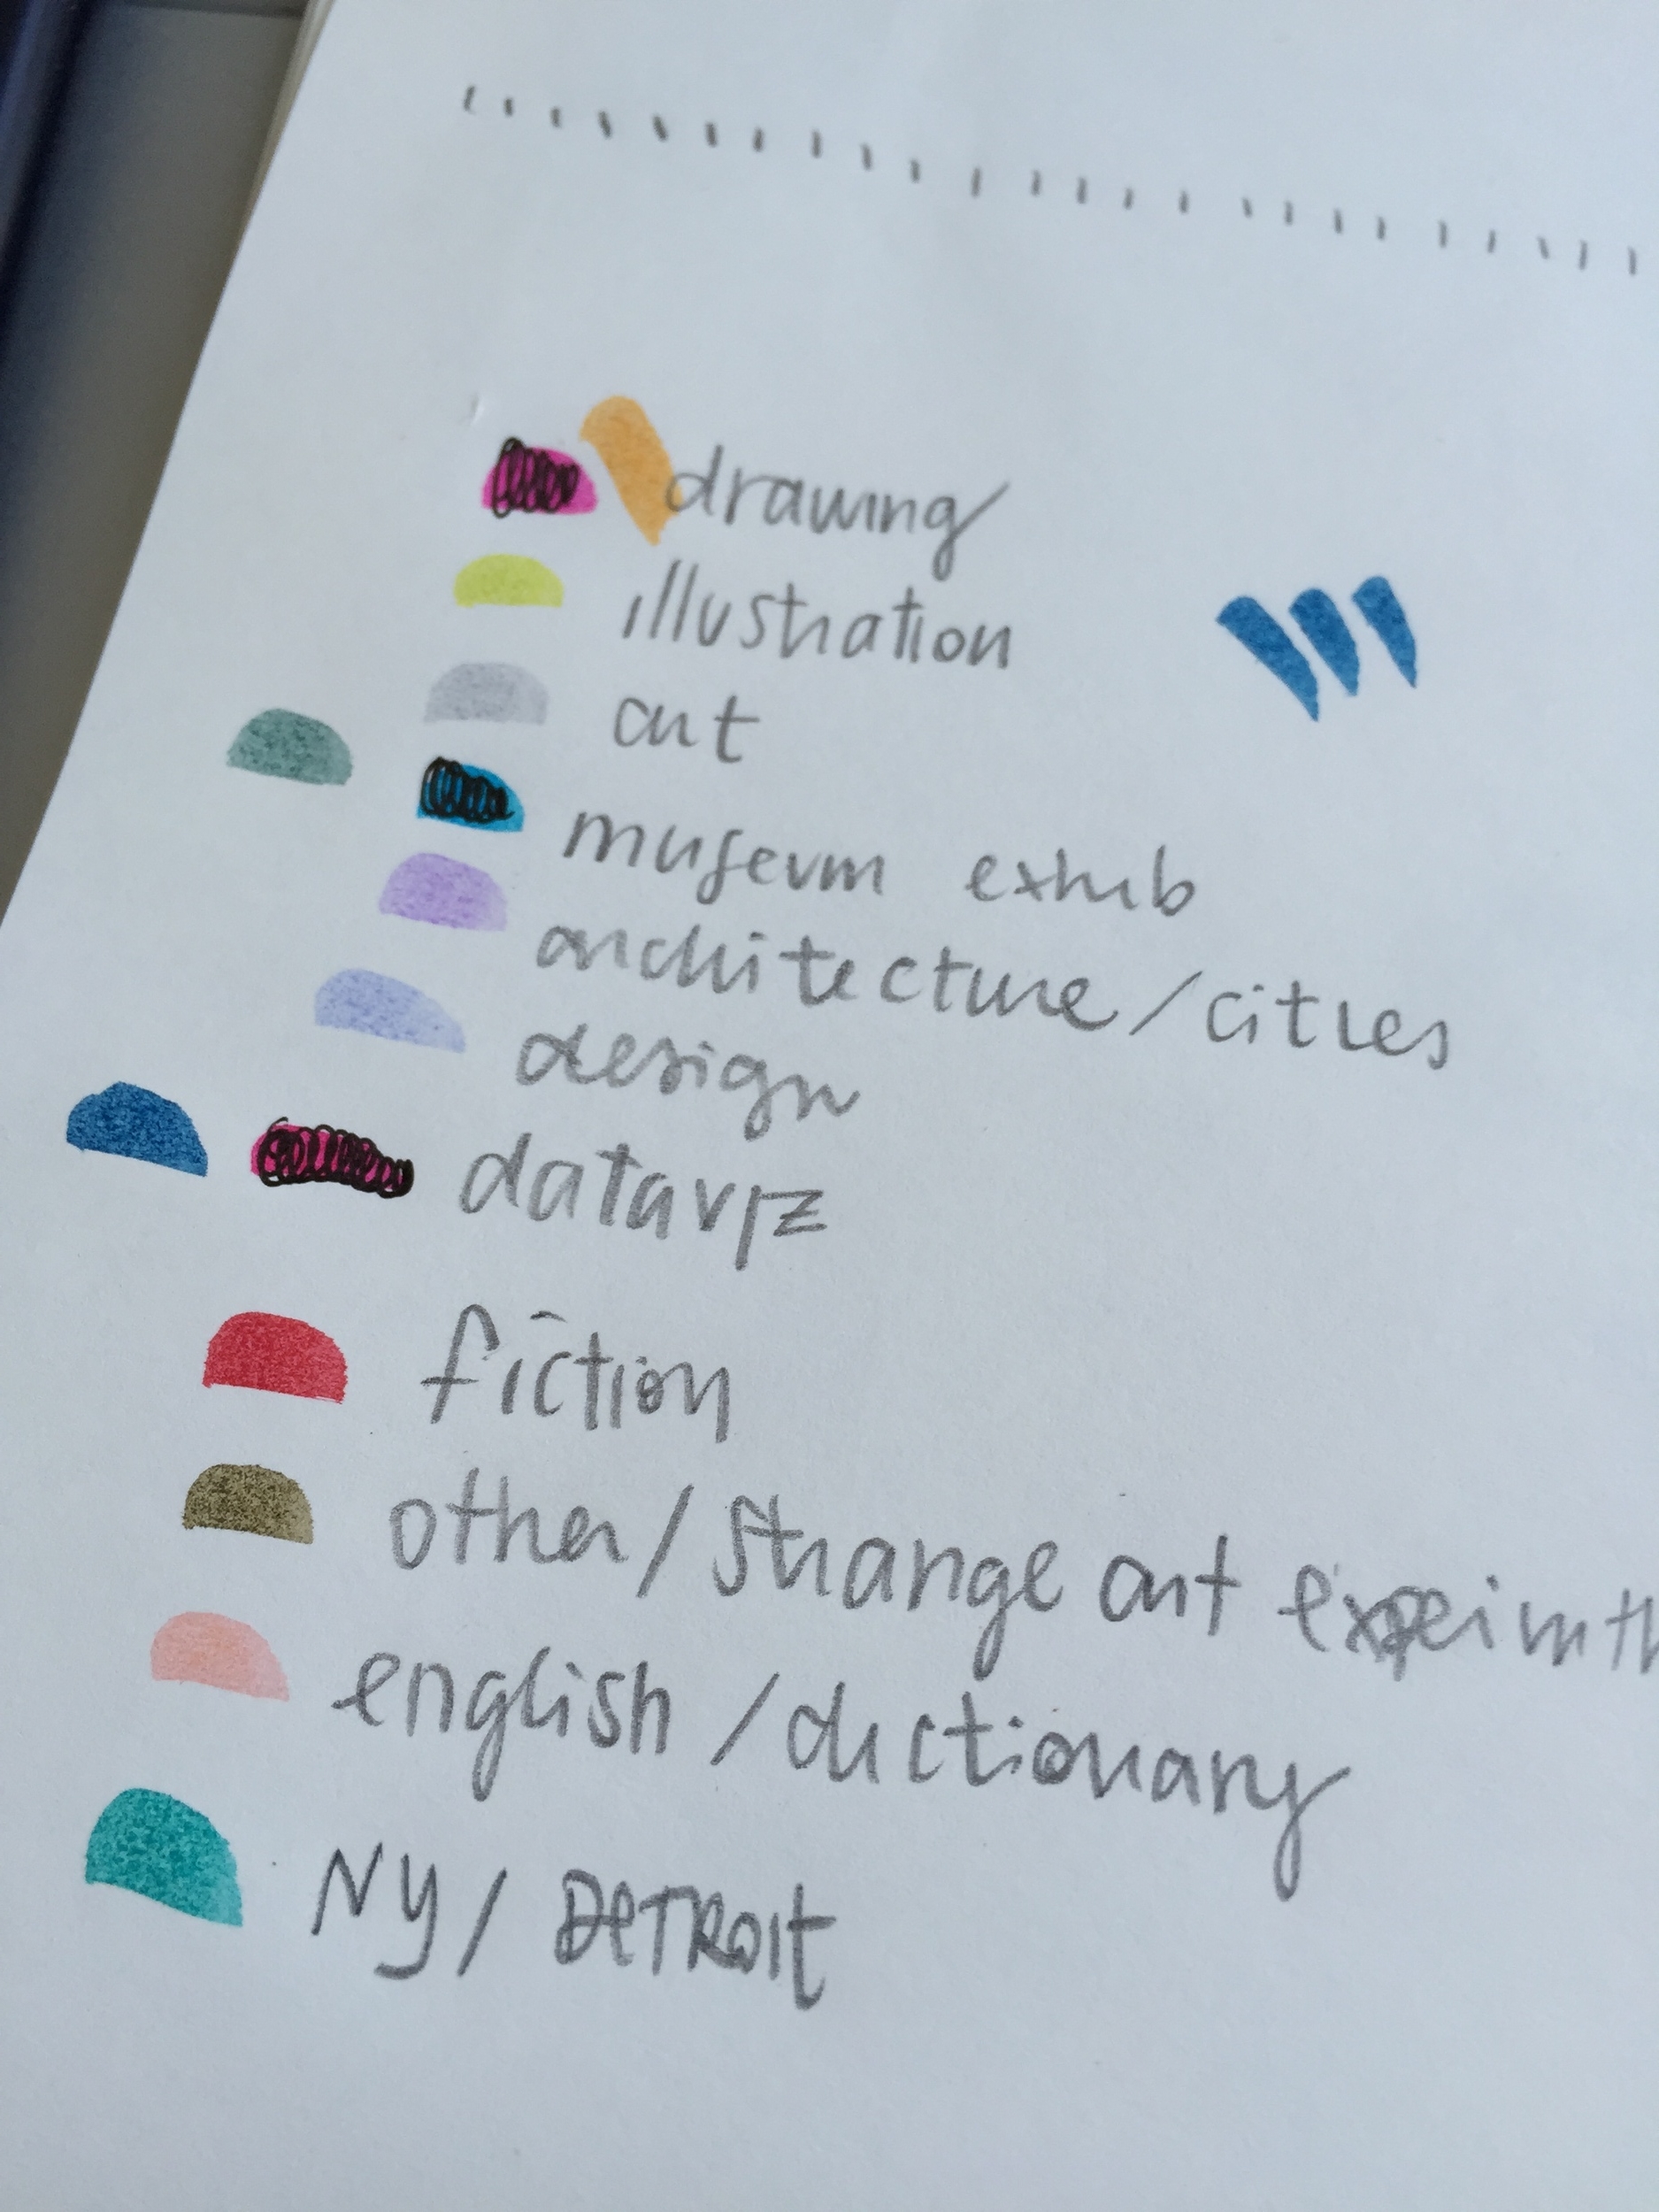 drawing
illustration
art
museum exhib
architecture/cities
design
dataviz
fiction
other/strange art
english/dictionary
NY/DETROIT